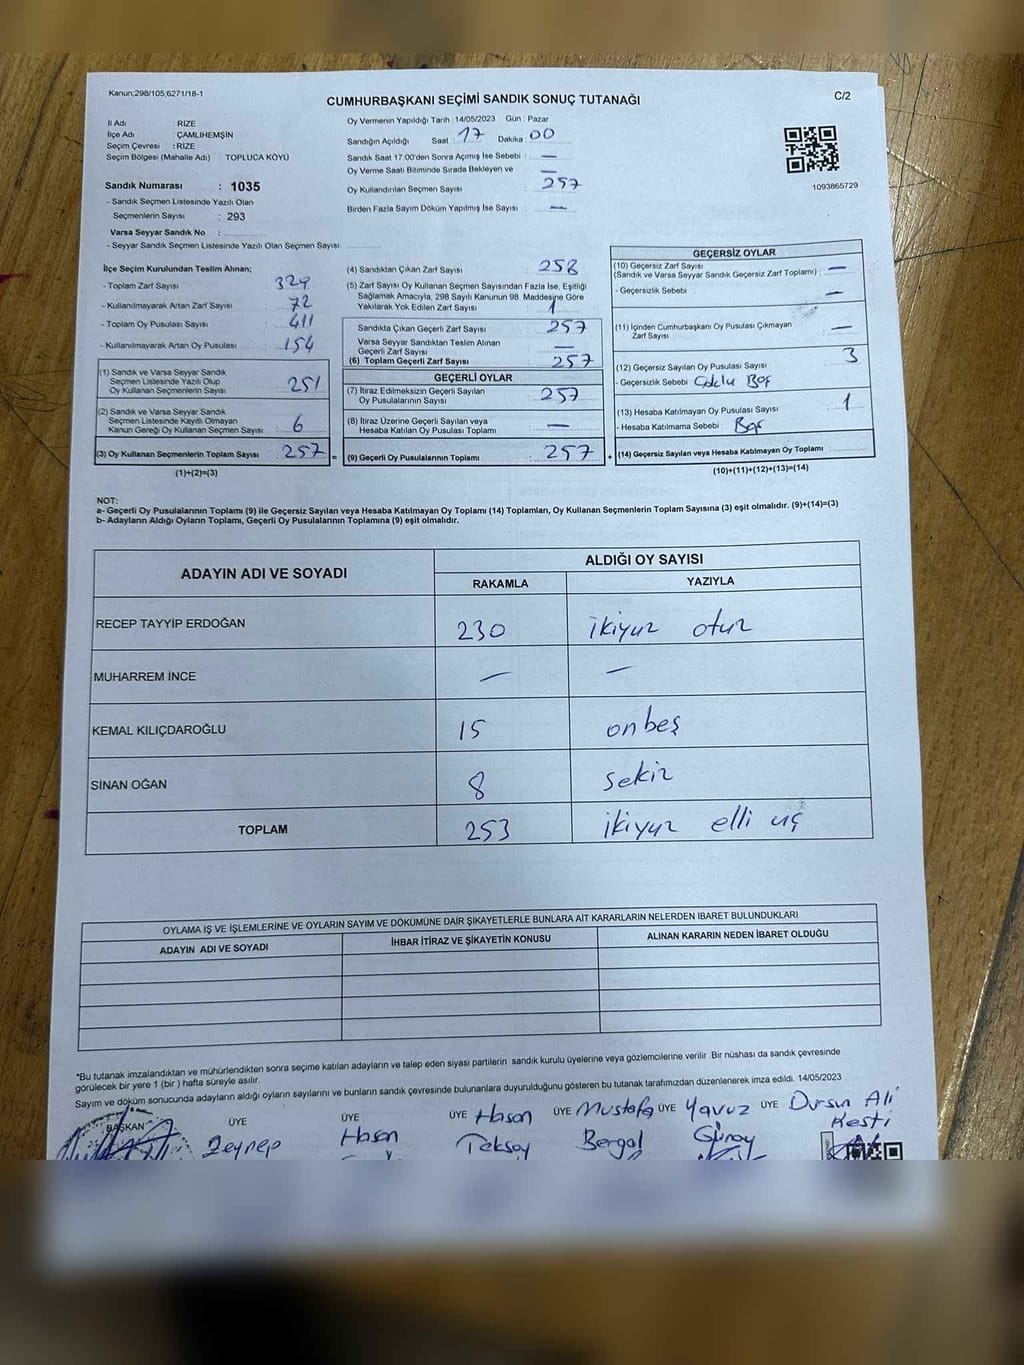 Kanun;298/105,6271/18-1
CUMHURBAŞKANI SEÇİMİ SANDIK SONUÇ TUTANAĞI
C/2
İl Adı : RİZE
İlçe Adı : ÇAMLIHEMŞİN
Seçim Çevresi : RİZE
Seçim Bölgesi (Mahalle Adı) : TOPLUCA KÖYÜ
Sandık Numarası : 1035
- Sandık Seçmen Listesinde Yazılı Olan
Seçmenlerin Sayısı : 293
Varsa Seyyar Sandık No :
- Seyyar Sandık Seçmen Listesinde Yazılı Olan Seçmen Sayısı
Oy Vermenin Yapıldığı Tarih :14/05/2023 Gün : Pazar
Sandığın Açıldığı Saat : 17 Dakika : 00
Sandık Saat 17:00'den Sonra Açımış İse Sebebi : —
Oy Verme Saati Bitiminde Sırada Bekleyen ve —
Oy Kullandırılan Seçmen Sayısı 257
Birden Fazla Sayım Döküm Yapılmış İse Sayısı : —
1093865729
İlçe Seçim Kurulundan Teslim Alınan;
- Toplam Zarf Sayısı : 329
- Kullanılmayarak Artan Zarf Sayısı : 72
- Toplam Oy Pusulası Sayısı : 411
- Kullanılmayarak Artan Oy Pusulası : 154
(1) Sandık ve Varsa Seyyar Sandık
Seçmen Listesinde Yazılı Olup
Oy Kullanan Seçmenlerin Sayısı : 251
(2) Sandık ve Varsa Seyyar Sandık
Seçmen Listesinde Kayıtlı Olmayan
Kanun Gereği Oy Kullanan Seçmen Sayısı : 6
(3) Oy Kullanan Seçmenlerin Toplam Sayısı : 257
(1)+(2)=(3)
(4) Sandıktan Çıkan Zarf Sayısı : 258
(5) Zarf Sayısı Oy Kullanan Seçmen Sayısından Fazla İse, Eşitliği
Sağlamak Amacıyla, 298 Sayılı Kanunun 98. Maddesine Göre
Yakılarak Yok Edilen Zarf Sayısı : 1
Sandıkta Çıkan Geçerli Zarf Sayısı : 257
Varsa Seyyar Sandıktan Teslim Alınan
Geçerli Zarf Sayısı : —
(6) Toplam Geçerli Zarf Sayısı : 257
GEÇERLİ OYLAR
(7) İtiraz Edilmeksizin Geçerli Sayılan
Oy Pusulalarının Sayısı : 257
(8) İtiraz Üzerine Geçerli Sayılan veya
Hesaba Katılan Oy Pusulası Toplamı : —
= (9) Geçerli Oy Pusulalarının Toplamı : 257 +
GEÇERSİZ OYLAR
(10) Geçersiz Zarf Sayısı
(Sandık ve Varsa Seyyar Sandık Geçersiz Zarf Toplamı) : —
- Geçersizlik Sebebi : —
(11) İçinden Cumhurbaşkanı Oy Pusulası Çıkmayan
Zarf Sayısı : —
(12) Geçersiz Sayılan Oy Pusulası Sayısı : 3
- Geçersizlik Sebebi : Boş
(13) Hesaba Katılmayan Oy Pusulası Sayısı : 1
- Hesaba Katılmama Sebebi : Boş
(14) Geçersiz Sayılan veya Hesaba Katılmayan Oy Toplamı :
(10)+(11)+(12)+(13)=(14)
NOT:
a- Geçerli Oy Pusulalarının Toplamı (9) ile Geçersiz Sayılan veya Hesaba Katılmayan Oy Toplamı (14) Toplamları, Oy Kullanan Seçmenlerin Toplam Sayısına (3) eşit olmalıdır. (9)+(14)=(3)
b- Adayların Aldığı Oyların Toplamı, Geçerli Oy Pusulalarının Toplamına (9) eşit olmalıdır.
ADAYIN ADI VE SOYADI
ALDIĞI OY SAYISI
RAKAMLA YAZIYLA
RECEP TAYYİP ERDOĞAN 230 ikiyuz otuz
MUHARREM İNCE — —
KEMAL KILIÇDAROĞLU 15 onbeş
SİNAN OĞAN 8 sekiz
TOPLAM 253 ikiyuz elli uç
OYLAMA İŞ VE İŞLEMLERİNE VE OYLARIN SAYIM VE DÖKÜMÜNE DAİR ŞİKAYETLERLE BUNLARA AİT KARARLARIN NELERDEN İBARET BULUNDUKLARI
ADAYIN ADI VE SOYADI İHBAR İTİRAZ VE ŞİKAYETİN KONUSU ALINAN KARARIN NEDEN İBARET OLDUĞU
*Bu tutanak imzalandıktan ve mühürlendikten sonra seçime katılan adayların ve talep eden siyasi partilerin sandık kurulu üyelerine veya gözlemcilerine verilir .Bir nüshası da sandık çevresinde
görülecek bir yere 1 (bir ) hafta süreyle asılır.
Sayım ve döküm sonucunda adayların aldığı oyların sayılarını ve bunların sandık çevresinde bulunanlara duyurulduğunu gösteren bu tutanak tarafımızdan düzenlenerek imza edildi. 14/05/2023
BAŞKAN ÜYE ÜYE ÜYE Hasan ÜYE Mustafa ÜYE Yavuz ÜYE Dursun Ali
Zeynep Hasan Teksoy Bergal Günay Kesti